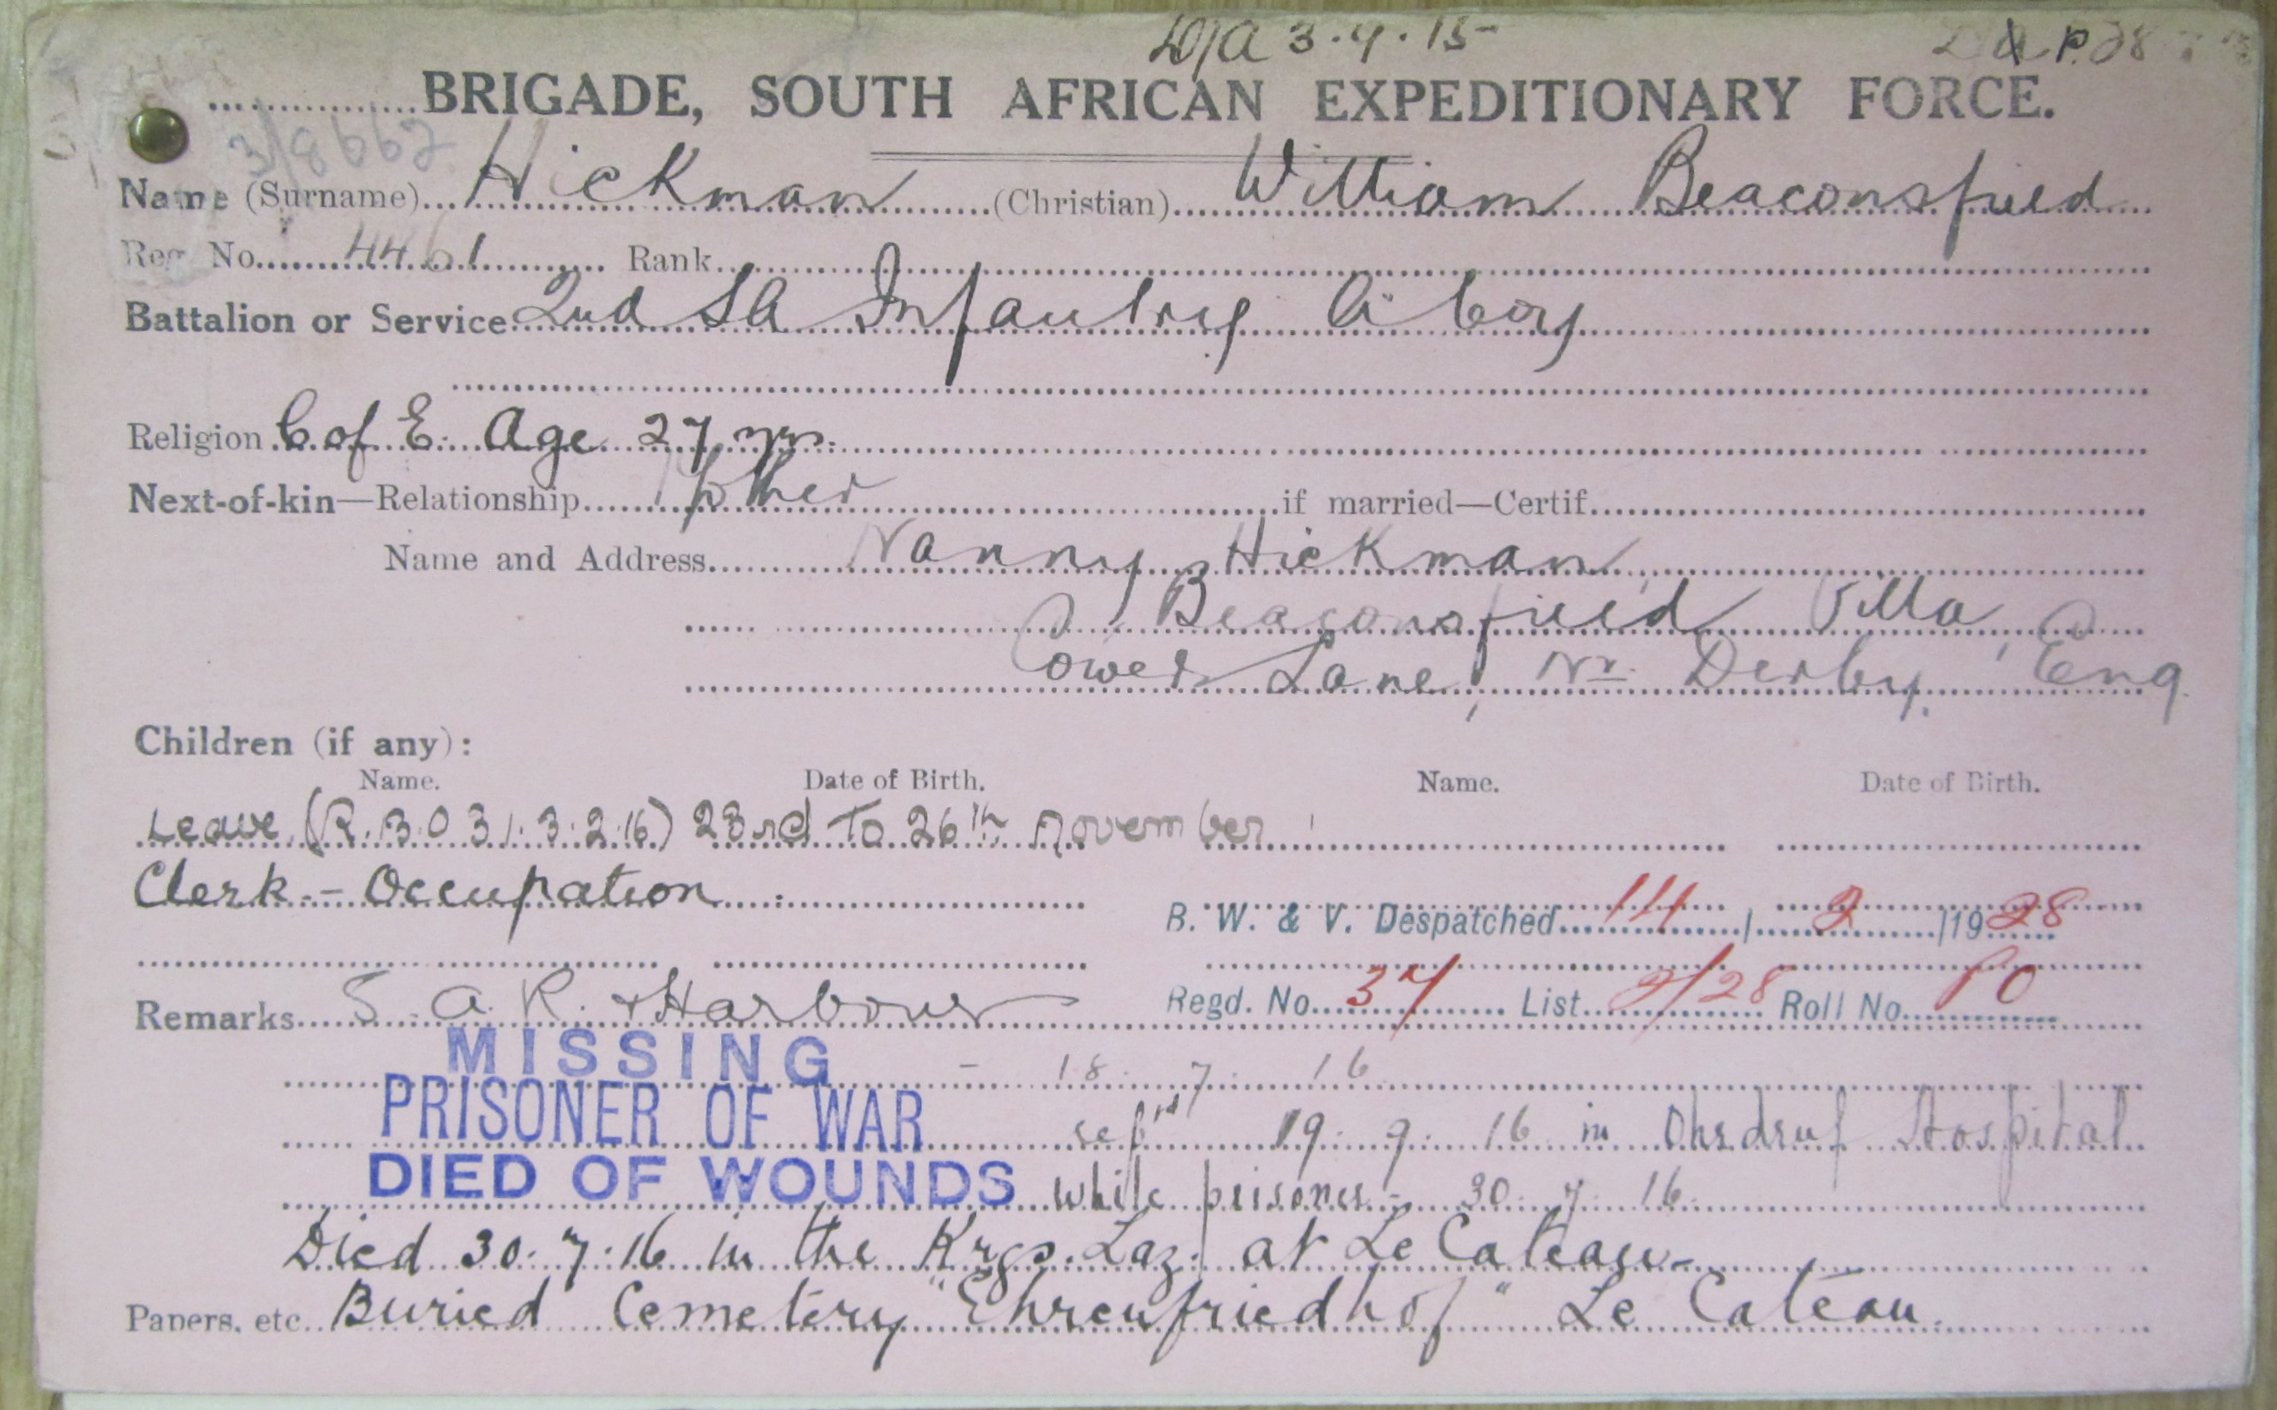 D/A 3.4.15
BRIGADE, SOUTH AFRICAN EXPEDITIONARY FORCE.
3/8662
Name (Surname) Hickman (Christian) William Beaconsfield
Reg. No. 4461 Rank
Battalion or Service 2nd SA Infantry "A" Coy
Religion C of E. Age 27 yrs.
Next-of-kin—Relationship Mother if married—Certif.
Name and Address Nanny Hickman
Beaconsfield Villa,
Lane, Nr. Derby. Eng.
Children (if any):
Name. Date of Birth. Name. Date of Birth.
Leave (R.B.O 31. 3.2.16) 23rd To 26th November
Clerk - Occupation
B. W. & V. Despatched 14 / 2 /1928
Remarks S.A.R. & Harbour Regd. No. 37 List 2/28 Roll No. 80
MISSING - 18. 7. 16
PRISONER OF WAR 19. 9. 16 in Ohrdruf Hospital
DIED OF WOUNDS while prisoner - 30. 7. 16.
Died 30.7.16 in the Krgs. Laz. at Le Cateau
Papers, etc. Buried Cemetery "Ehrenfriedhof" Le Cateau.